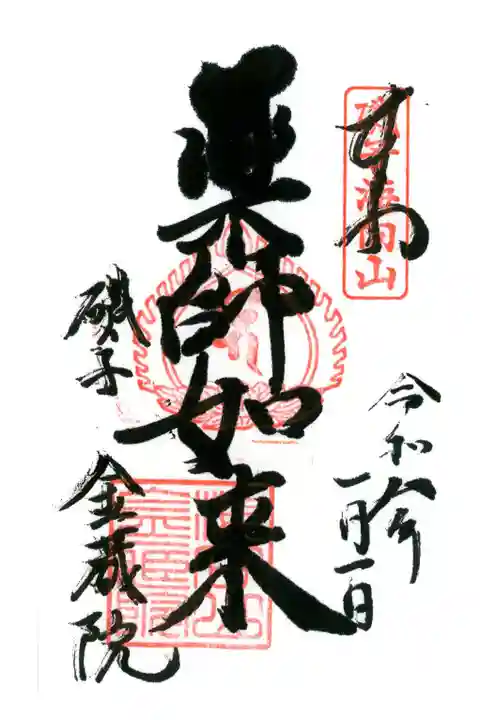 奉拝
磯子海向山
令和
一月一日
薬師如来
磯子
金蔵院